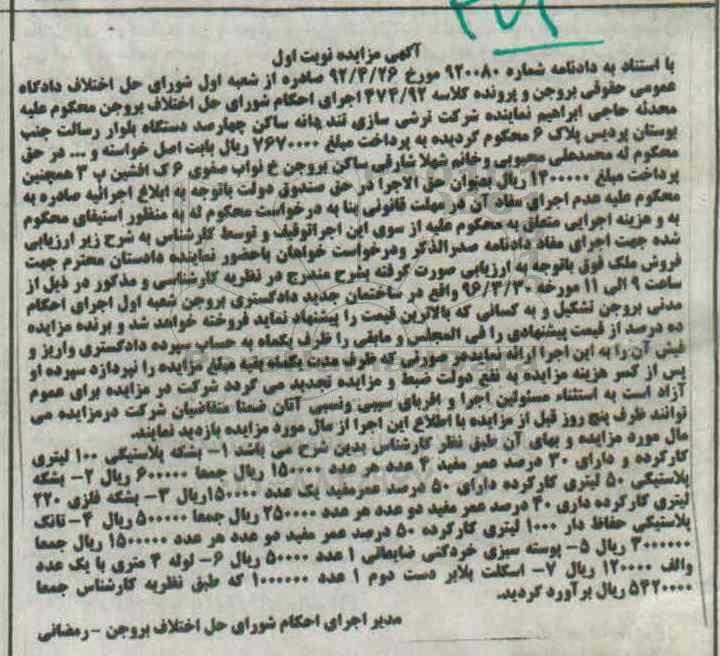 ۴۷۴
آگهی مزایده نوبت اول
با استناد به دادنامه شماره ۹۲۰۰۸۰ مورخ ۹۲/۴/۲۶ صادره از شعبه اول شورای حل اختلاف دادگاه
عمومی حقوقی بروجن و پرونده کلاسه ۴۷۴/۹۲ اجرای احکام شورای حل اختلاف بروجن محکوم علیه
محدثه حاجی ابراهیم نماینده شرکت ترشی سازی قند دانه ساکن چهارصد دستگاه بلوار رسالت جنب
بوستان پردیس پلاک ۶ محکوم گردیده به پرداخت مبلغ ۷۶۷۰۰۰۰ ریال بابت اصل خواسته و ... در حق
محکوم له محمدعلی محبوبی وخانم شهلا شارقی ساکن بروجن خ نواب صفوی ۶ ک افشین پ ۳ همچنین
پرداخت مبلغ ۱۴۰۰۰۰۰ ریال بعنوان حق الاجرا در حق صندوق دولت باتوجه به ابلاغ اجرائیه صادره به
محکوم علیه عدم اجرای مفاد آن در مهلت قانونی بنا به درخواست محکوم له به منظور استیفای محکوم
به و هزینه اجرایی متعلق به محکوم علیه از سوی این اجراتوقیف و توسط کارشناس به شرح زیر ارزیابی
شده جهت اجرای مفاد دادنامه صدرالذکر ودرخواست خواهان باحضور نماینده دادستان محترم جهت
فروش ملک فوق باتوجه به ارزیابی صورت گرفته بشرح مندرج در نظریه کارشناسی و مذکور در ذیل از
ساعت ۹ الی ۱۱ مورخه ۹۶/۳/۳۰ واقع در ساختمان جدید دادگستری بروجن شعبه اول اجرای احکام
مدنی بروجن تشکیل و به کسانی که بالاترین قیمت را پیشنهاد نماید فروخته خواهد شد و برنده مزایده
ده درصد از قیمت پیشنهادی را فی المجلس و مابقی را ظرف یکماه به حساب سپرده دادگستری واریز و
فیش آن را به این اجرا ارائه نمایددر صورتی که ظرف مدت یکماه بقیه مبلغ مزایده را نپردازد سپرده او
پس از کسر هزینه مزایده به نفع دولت ضبط و مزایده تجدید می گردد شرکت در مزایده برای عموم
آزاد است به استثناء مسئولین اجرا و اقربای سببی ونسبی آنان ضمنا متقاضیان شرکت درمزایده می
توانند ظرف پنج روز قبل از مزایده با اطلاع این اجرا از مال مورد مزایده بازدید نمایند.
مال مورد مزایده و بهای آن طبق نظر کارشناس بدین شرح می باشد ۱- بشکه پلاستیکی ۱۰۰ لیتری
کارکرده و دارای ۳۰ درصد عمر مفید ۴ عدد هر عدد ۱۵۰۰۰۰ ریال جمعا ۶۰۰۰۰۰ ریال ۲- بشکه
پلاستیکی ۵۰ لیتری کارکرده دارای ۵۰ درصد عمرمفید یک عدد ۱۵۰۰۰۰ریال ۳- بشکه فلزی ۲۲۰
لیتری کارکرده داری ۴۰ درصد عمر مفید دو عدد هر عدد ۲۵۰۰۰۰ ریال جمعا ۵۰۰۰۰۰ ریال ۴- تانک
پلاستیکی حفاظ دار ۱۰۰۰ لیتری کارکرده ۵۰ درصد عمر مفید دو عدد هر عدد ۱۵۰۰۰۰۰ ریال جمعا
۳۰۰۰۰۰۰ ریال ۵- پوسته سبزی خردکنی ضایعاتی ۱ عدد ۵۰۰۰۰ ریال ۶- لوله ۴ متری با یک عدد
والف ۱۲۰۰۰۰ ریال ۷- اسکلت بلابر دست دوم ۱ عدد ۱۰۰۰۰۰۰ که طبق نظریه کارشناس جمعا
۵۴۲۰۰۰۰ ریال برآورد گردید.
مدیر اجرای احکام شورای حل اختلاف بروجن - رمضانی